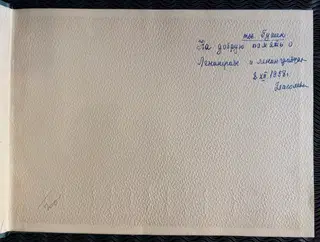 тов. Бушин
На добрую память о
Ленинграде и ленинградцах
2 XII 1958г.